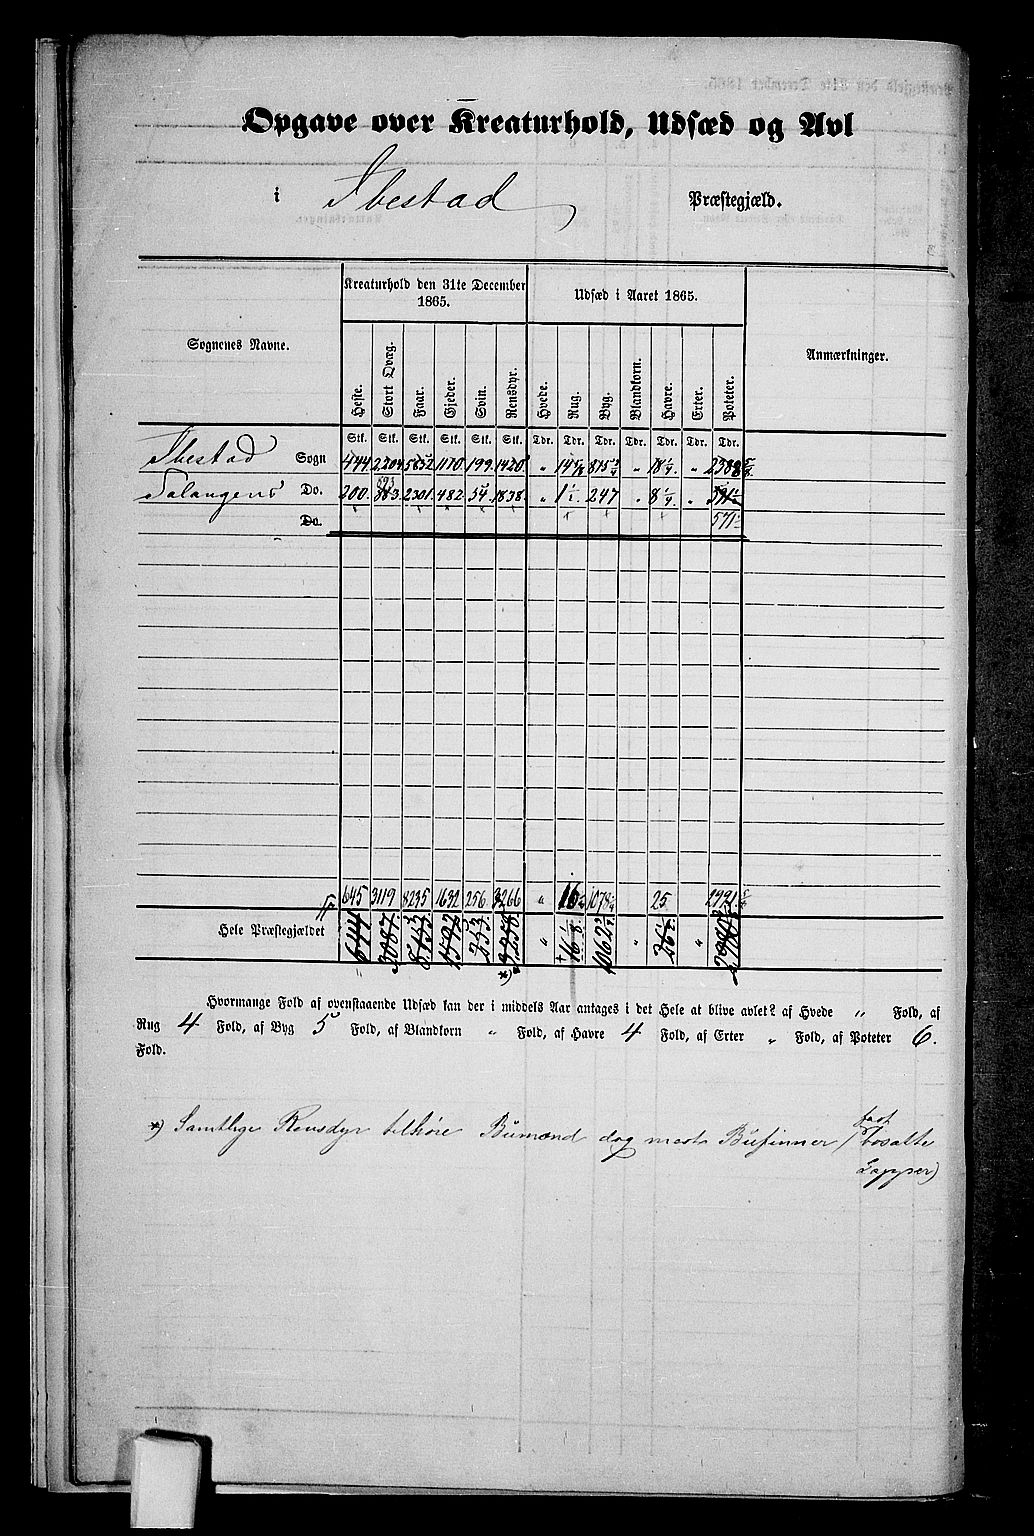 Opgave over Kreaturhold, Udsæd og Avl
i Ibestad Præstegjæld.
Kreaturhold den 31te December 1865.
Udsæd i Aaret 1865.
Sognenes Navne.
Anmærkninger.
Heste. Stort Qvæg. Faar. Gjeder. Svin. Rensdyr. Hvede. Rug. Byg. Blandkorn. Havre. Erter. Poteter.
Stk. Stk. Stk. Stk. Stk. Stk. Tdr. Tdr. Tdr. Tdr. Tdr. Tdr. Tdr.
Ibestad Sogn 444. 2204. 5852 1110. 199. 1420. „ 14 815 „ 18 1/4. „ 2388 5/8
893
Salangens Do. 200. 2301. 482. 54. 1838. „ 1 247 „ 8 1/4. „
Do. 571
645 3119. 8235 1632 256. 3266 „ 16 1078 25
Hele Præstegjældet 644 3087. 8153 1592 253. 3258 „ 16 1/8. 1062 „ 26 „
*)
Hvormange Fold af ovenstaaende Udsæd kan der i middels Aar antages i det Hele at blive avlet? af Hvede „ Fold, af
Rug 4 Fold, af Byg 5 Fold, af Blandkorn „ Fold, af Havre 4 Fold, af Erter „ Fold, af Poteter 6.
Fold.
fast
*) Samtlige Rensdyr tilhøre Bumænd dog mest Bufinner (bosatte
Lapper)